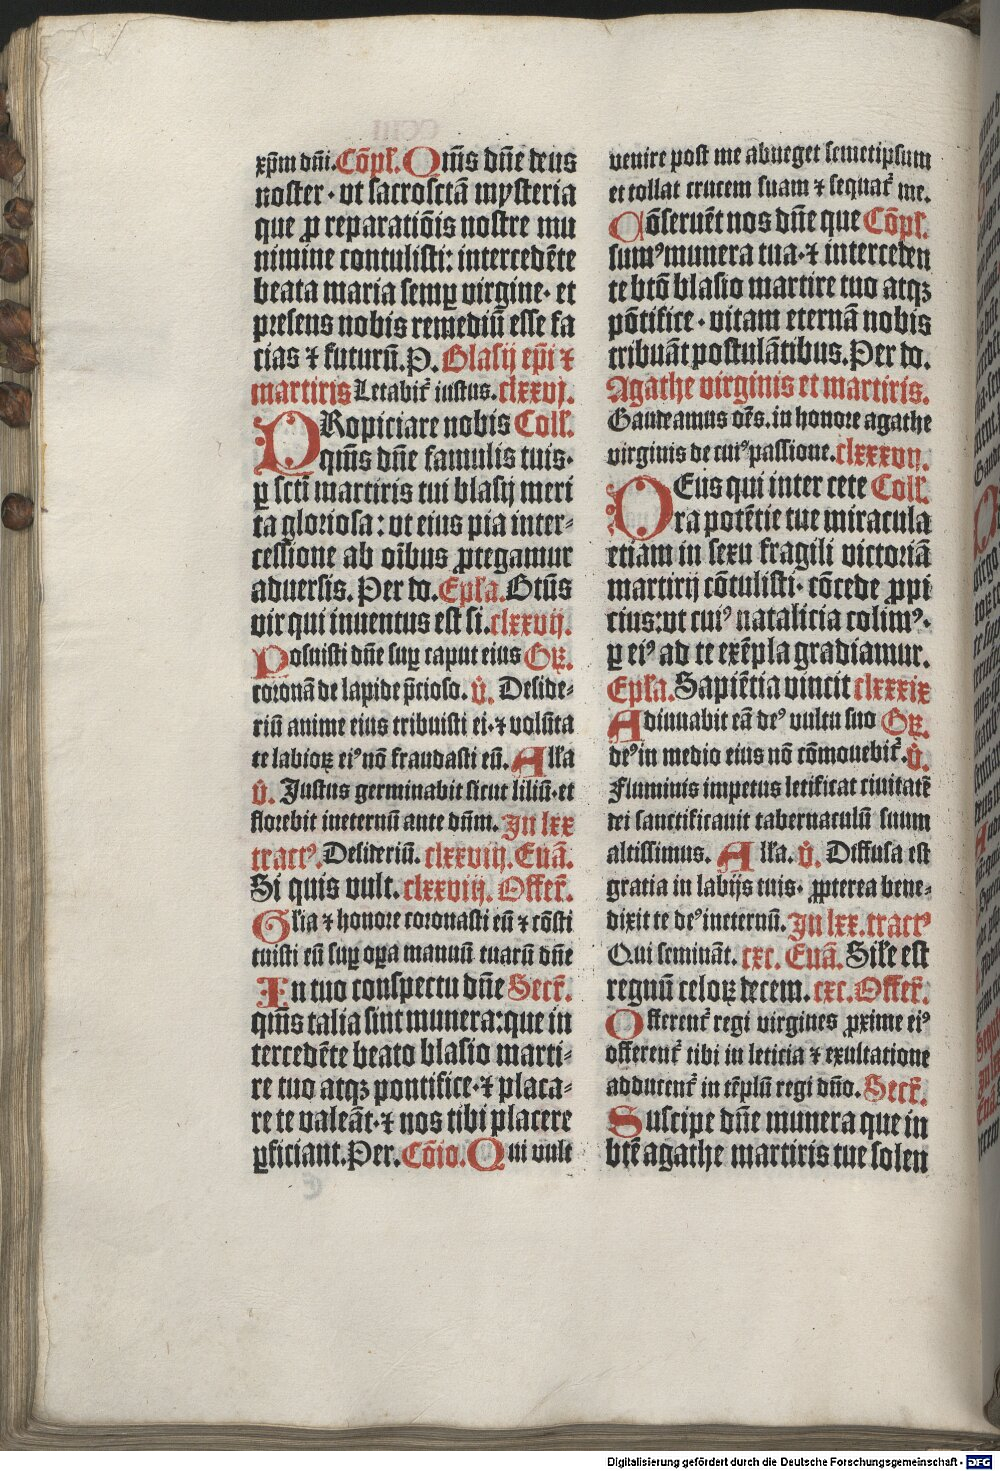 xp̄m dn̄i. Cōpl̄. Qm̄s dn̄e deus
noster · vt sacrosctā mysteria
que ꝓ reparatiōis nostre mu
nimine contulisti: intercedēte
beata maria semꝑ virgine · et
presens nobis remediū esse fa
cias ⁊ futurū. P. Blasij ep̄i ⁊
martiris Letabit̉ iustus. clxxvj.
PRopiciare nobis Coll̄.
qm̄s dn̄e famulis tuis ·
ꝑ scti martiris tui blasij meri
ta gloriosa: vt eius pia inter⸗
cessione ab oībus ꝓtegamur
aduersis. Per do. Epl̄a. Btūs
vir qui inuentus est si. clxxvij.
Posuisti dn̄e suꝑ caput eius Gꝝ.
coronā de lapide p̄cioso. v̉. Deside⸗
riū anime eius tribuisti ei · ⁊ volūta
te labioꝝ eiꝰ nō fraudasti eū. All̄a
v̉. Justus germinabit sicut liliū · et
florebit ineternū ante dn̄m. Jn lxx
tractꝰ. Desideriū. clxxviij. Euā.
Si quis vult. clxxviij. Offer̄.
Glīa ⁊ honore coronasti eū ⁊ cōsti
tuisti eū suꝑ oꝑa manuū tuarū dn̄e
In tuo conspectu dn̄e Secr̄.
qm̄s talia sint munera: que in
tercedēte beato blasio marti⸗
re tuo atqꝫ pontifice · ⁊ placa⸗
re te valeāt · ⁊ nos tibi placere
ꝑficiant. Per. Cōio. Qui vult
venire post me abneget semetipsum
et tollat crucem suam ⁊ sequat̉ me.
Cōseruēt nos dn̄e que Cōpl̄.
sumꝰ munera tua · ⁊ interceden
te btō blasio martire tuo atqꝫ
pōtifice · vitam eternā nobis
tribuāt postulātibus. Per do.
Agathe virginis et martiris.
Gaudeamus oēs. in honore agathe
virginis de cuiꝰ passione. clxxxvij.
DEus qui inter cete Coll̄.
ra potētie tue miracula
etiam in sexu fragili victoriā
martirij cōtulisti · cōcede ꝓpi
cius: vt cuiꝰ natalicia colimꝰ ·
ꝑ eiꝰ ad te exēpla gradiamur.
Epl̄a. Sapiētia vincit clxxxix
Adiuuabit eā deꝰ vultu suo Gꝝ.
deꝰ in medio eius nō cōmouebit̉. v̉.
Fluminis impetus letificat ciuitatē
dei sanctificauit tabernaculū suum
altissimus. All̄a. v̉. Diffusa est
gratia in labijs tuis · ꝓpterea bene⸗
dixit te deꝰ ineternū. Jn lxx. tractꝰ
Qui semināt. cxc. Euā. Sil̄e est
regnū celoꝝ decem. cxc. Offer̄.
Offerent̉ regi virgines ꝓxime eiꝰ
offerent̉ tibi in leticia ⁊ exultatione
adducent̉ in tēplū regi dn̄o. Secr̄.
Suscipe dn̄e munera que in
btē agathe martiris tue solen
Digitalisierung gefördert durch die Deutsche Forschungsgemeinschaft - DFG